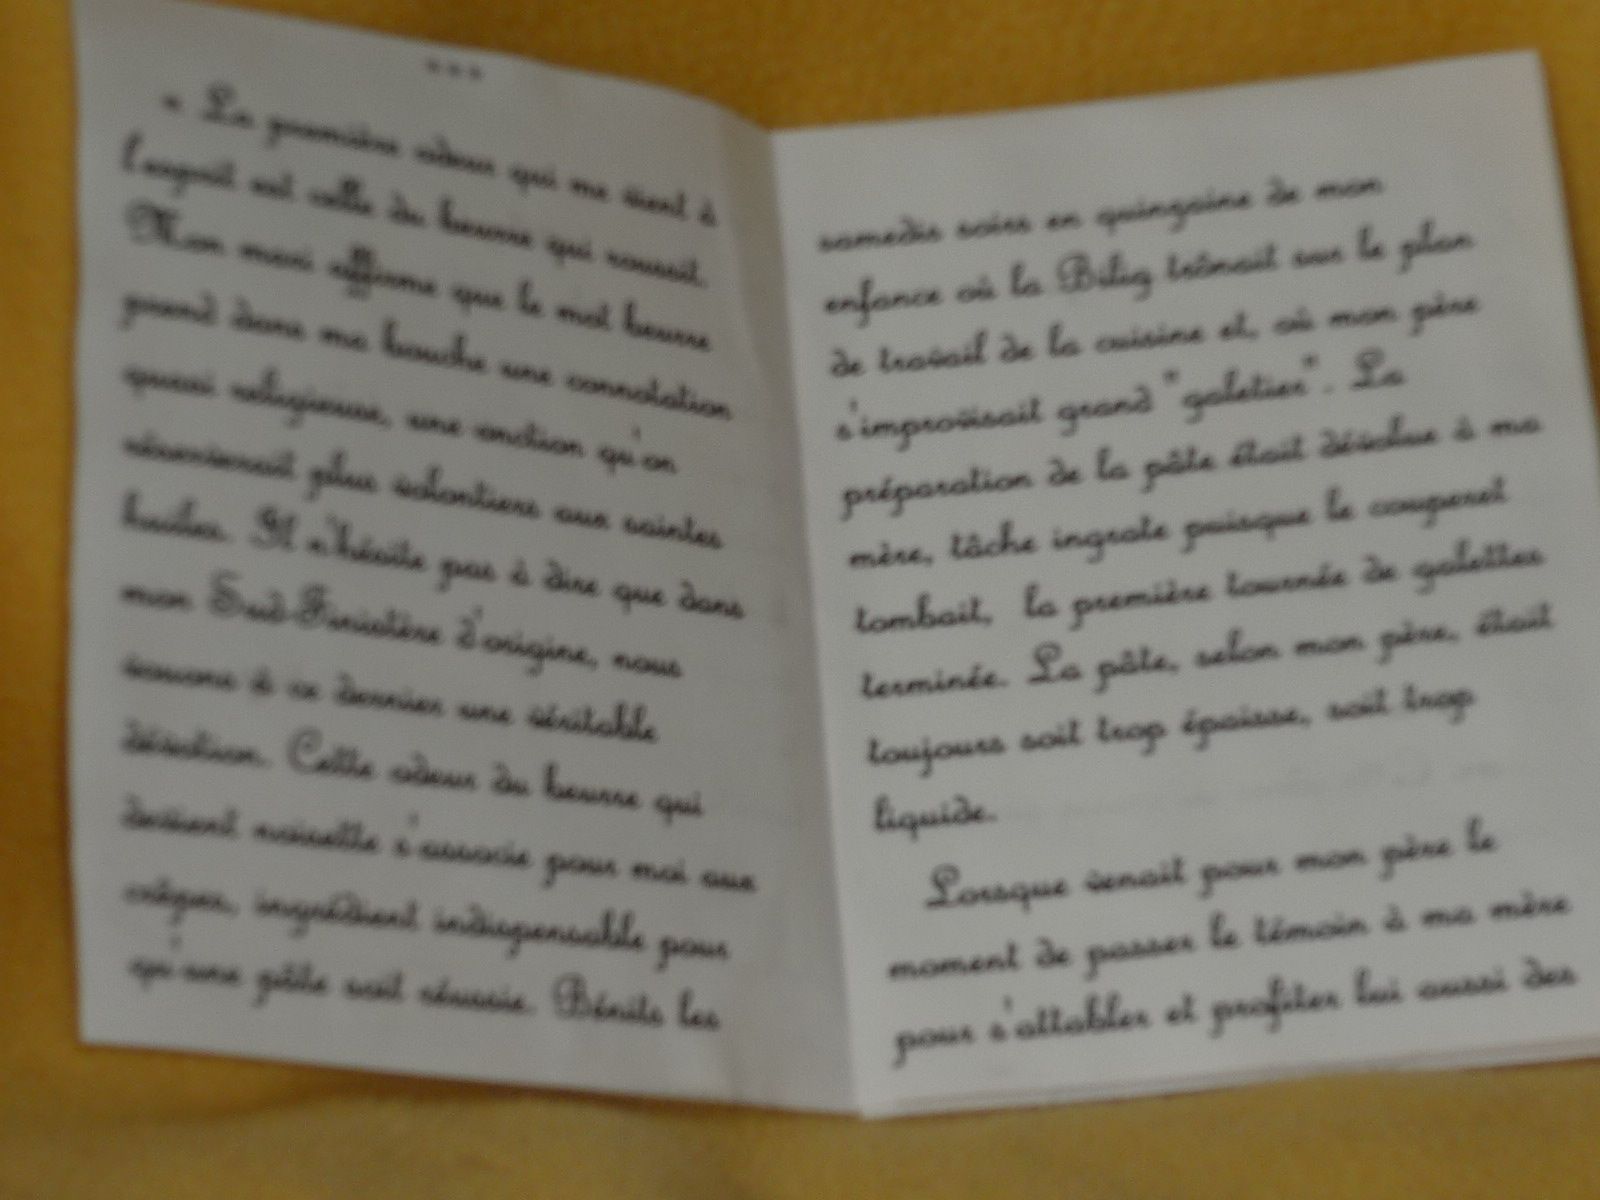 ***
« La première odeur qui me vient à
l'esprit est celle du beurre qui roussit.
Mon mari affirme que le mot beurre
prend dans ma bouche une connotation
quasi religieuse, une onction qu'on
réserverait plus volontiers aux saintes
huiles. Il n'hésite pas à dire que dans
mon Sud-Finistère d'origine, nous
vouons à ce dernier une véritable
dévotion. Cette odeur du beurre qui
devient noisette s'associe pour moi aux
crêpes, ingrédient indispensable pour
qu'une pâte soit réussie. Bénits les
samedis soirs en quinzaine de mon
enfance où la Bilig trônait sur le plan
de travail de la cuisine et, où mon père
s'improvisait grand "galetier". La
préparation de la pâte était dévolue à ma
mère, tâche ingrate puisque le couperet
tombait, la première tournée de galettes
terminée. La pâte, selon mon père, était
toujours soit trop épaisse, soit trop
liquide.
Lorsque venait pour mon père le
moment de passer le témoin à ma mère
pour s'attabler et profiter lui aussi des